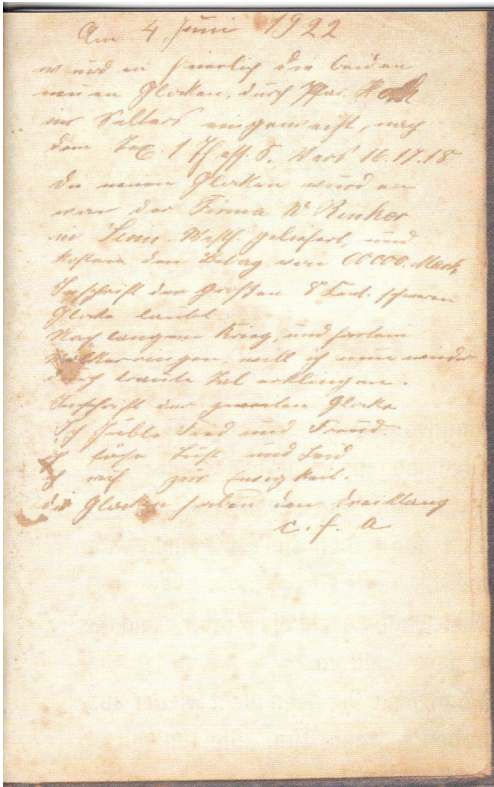 Am 4 Juni 1922
wurden feierlich die beiden
neuen Glocken, durch Pfar.
in Selters eingeweiht, nach
dem Tex. 1 Thess. 5. Vers 16.17.18
die neuen Glocken wurden
von der Firma Rinker
in Sinn. Westf. geliefert, und
kosten den Betrag von 60000. Mark
Inschrift der großen 8 schweren
Glocke lautet
Nach langem Krieg, und hartem
Völkerringen, will ich nun wieder
durch traute Tal erklingen.
Inschrift der zweiten Glocke
Ich Lied und Freud
Ich Lust und Leid
Ich ruf zur Ewigkeit.
die Glocken haben den Dreiklang
c. f. a